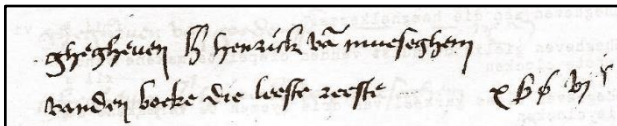 ghegheven B henrick vā mueseghem
vanden boeke die leeste reeste xϐ ϐ vj s